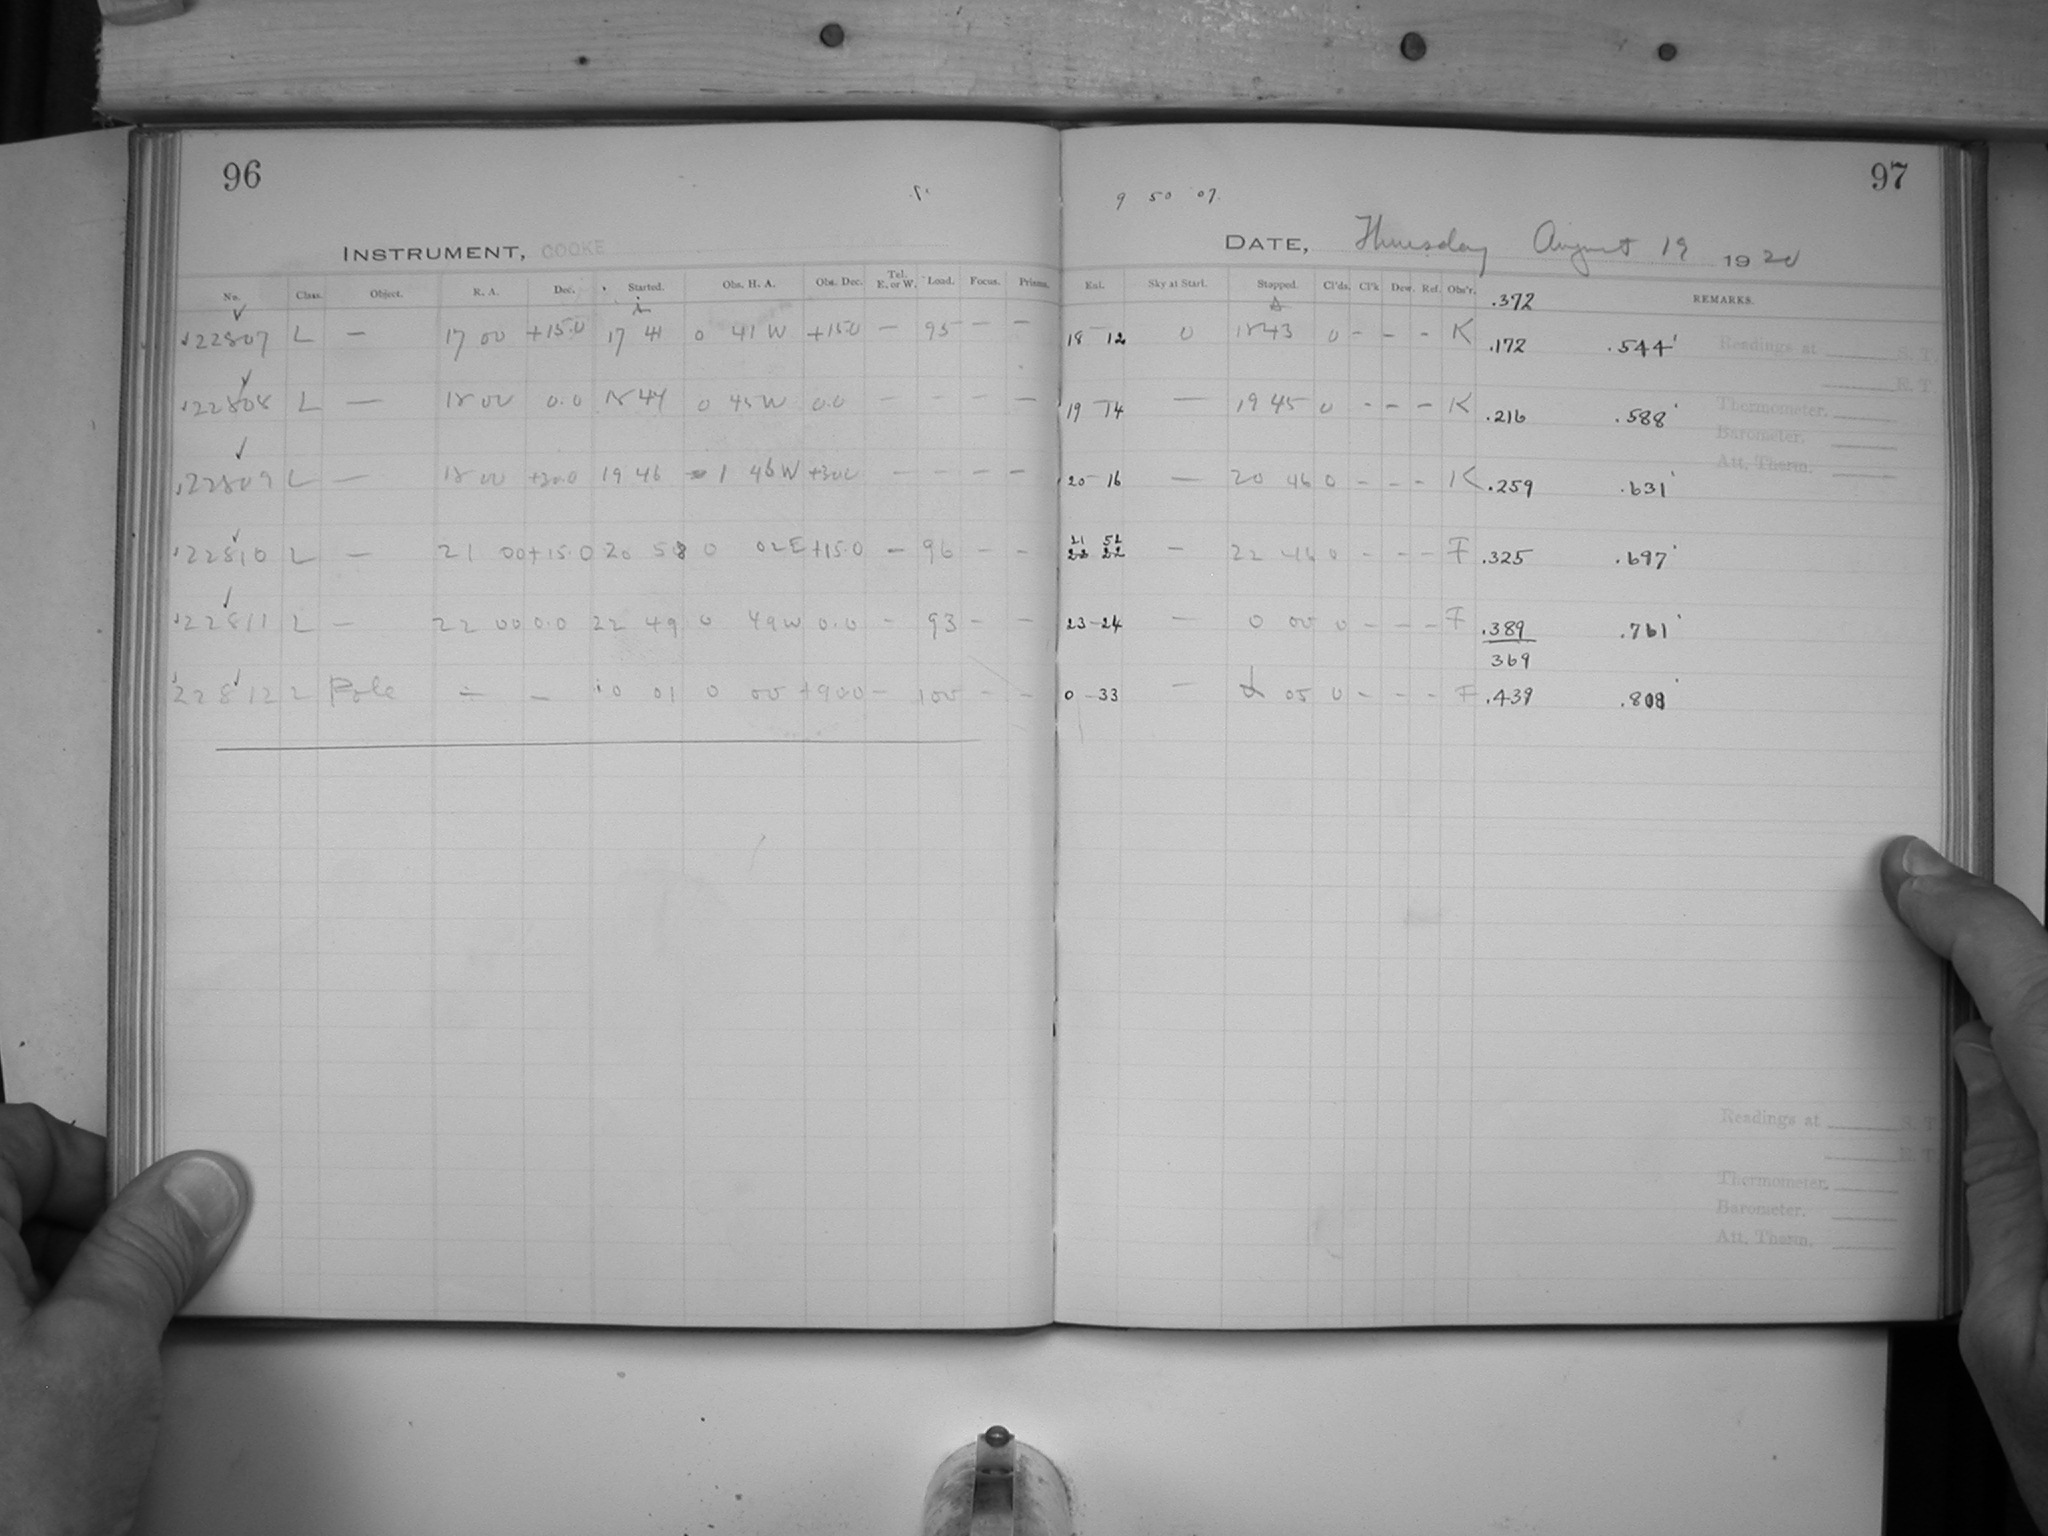 96
97
9 50 07.
INSTRUMENT, COOKE
DATE, Thursday August 19 1920
No. Class. Object. R. A. Dec. Started. Obs. H. A. Obs. Dec. Tel. E. or W. Load. Focus. Prisms.
Exl. Sky at Start. Stopped. Cl'ds. Cl'k Dew. Ref. Obs'r. .372 REMARKS.
22807 L — 17 00 +15.0 17 41 0 41 W +15.0 — 95 — —
18 12 0 18 43 0 - - - K .172 .544
22808 L — 18 00 0.0 18 44 0 45 W 0.0 — — — —
19 14 — 19 45 0 - - - K .216 .588
22809 L — 18 00 +30.0 19 46 1 46 W +30.0 — — — —
20 16 — 20 46 0 - - - K .259 .631
22810 L — 21 00 +15.0 20 58 0 02 E +15.0 — 96 — —
21 52
22 22 — 22 46 0 - - - F .325 .697
22811 L — 22 00 0.0 22 49 0 49 W 0.0 — 93 — —
23-24 — 0 00 0 - - - F .389 .761
369
22812 L Pole — — 0 01 0 00 +90.0 — 100 — —
0-33 — 05 0 - - - F .439
Readings at S. T.
E. T.
Thermometer.
Barometer.
Att. Therm.
Readings at S. T.
E. T.
Thermometer.
Barometer.
Att. Therm.